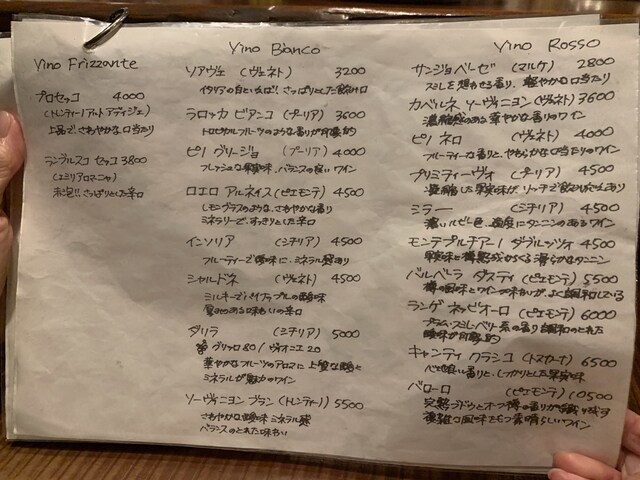 Vino Frizzante
プロセッコ 4000
(トレンティーノアルト アディジェ)
上品で さわやかな 口当たり
ランブルスコ セッコ 3800
(エミリアロマーニャ)
赤泡!! さっぱりとした辛口
Vino Bianco
ソアヴェ (ヴェネト) 3200
イタリアの白といえば!! さっぱりとした飲み口
ラロッカ ビアンコ (プーリア) 3600
トロピカルフルーツのような香りが印象的
ピノ グリージョ (プーリア) 4000
フレッシュな果実味、バランスの良いワイン
ロエロ アルネイス (ピエモンテ) 4500
レモングラスのような、さわやかな香り
ミネラリーで、すっきりとした辛口
インソリア (シチリア) 4500
フルーティーで酸味に、ミネラル感あり
シャルドネ (ヴェネト) 4500
ミルキーでパイナップルの酸味
厚みのある味わいの辛口
ダリラ (シチリア) 5000
グリッロ80/ヴィオニエ20
華やかなフルーツのアロマに 上質な酸と
ミネラルが魅力のワイン
ソーヴィニヨン ブラン (トレンティーノ) 5500
さわやかな酸味 ミネラル感
バランスのとれた味わい
Vino Rosso
サンジョベーゼ (マルケ) 2800
スミレを想わせる香り、軽やかな口当たり
カベルネ ソーヴィニヨン (ヴェネト) 3600
濃縮感のある 華やかな香りのワイン
ピノ ネロ (ヴェネト) 4000
フルーティーな香りと、やわらかな口当たりのワイン
プリミティーヴォ (プーリア) 4500
凝縮した果実味が、リッチで飲みごたえあり
シラー (シチリア) 4500
濃いルビー色、適度にタンニンのあるワイン
モンテプルチアーノ ダブルッツォ 4500
果実味と樽熟成からくる滑らかなタンニン
バルベラ ダスティ (ピエモンテ) 5500
樽の風味とワインの味わいが、よく調和している
ランゲ ネッビオーロ (ピエモンテ) 6000
プラム・スミレ・ベリー系の香り 調和のとれた
酸味が印象的
キャンティ クラシコ (トスカーナ) 6500
心地良い香りと、しっかりとした果実味
バローロ (ピエモンテ) 10500
完熟ブドウとオーク樽の香りが織り成す
複雑な風味をもつ素晴らしいワイン